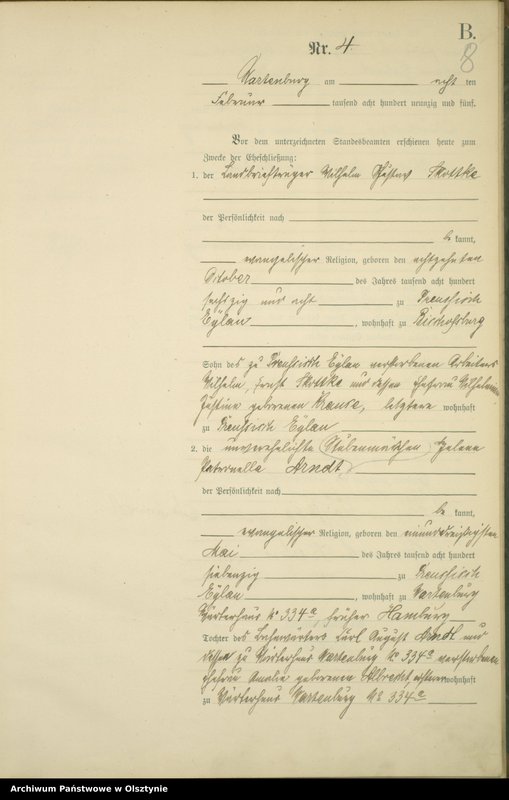 B.
8
Nr. 4
Wartenburg am acht ten
Februar tausend acht hundert neunzig und fünf.
Vor dem unterzeichneten Standesbeamten erschienen heute zum
Zwecke der Eheschließung:
1. der Landbriefträger Wilhelm Gustav Skottke
der Persönlichkeit nach
be kannt,
evangelischer Religion, geboren den achtzehnten
October des Jahres tausend acht hundert
sechszig und acht zu Preussisch
Eylau, wohnhaft zu Bischofsburg
Sohn des zu Preussisch Eylau verstorbenen Arbeiters
Wilhelm, Ernst Skottke und dessen Ehefrau Wilhelmine
Justine geborenen Krause, letztere wohnhaft
zu Preussisch Eylau
2. die unverehelichte Stubenmädchen Helene
Paternella Arndt,
der Persönlichkeit nach
be kannt,
evangelischer Religion, geboren den einunddreißigsten
Mai des Jahres tausend acht hundert
siebenzig zu Preussisch
Eylau, wohnhaft zu Wartenburg
Wärterhaus No 334a, früher Hamburg
Tochter des Bahnwärters Carl August Arndt und
dessen zu Wärterhaus Wartenburg No 334a verstorbenen
Ehefrau Amalie geborenen Albrecht, wohnhaft
zu Wärterhaus Wartenburg No 334a
Archiwum Państwowe w Olsztynie